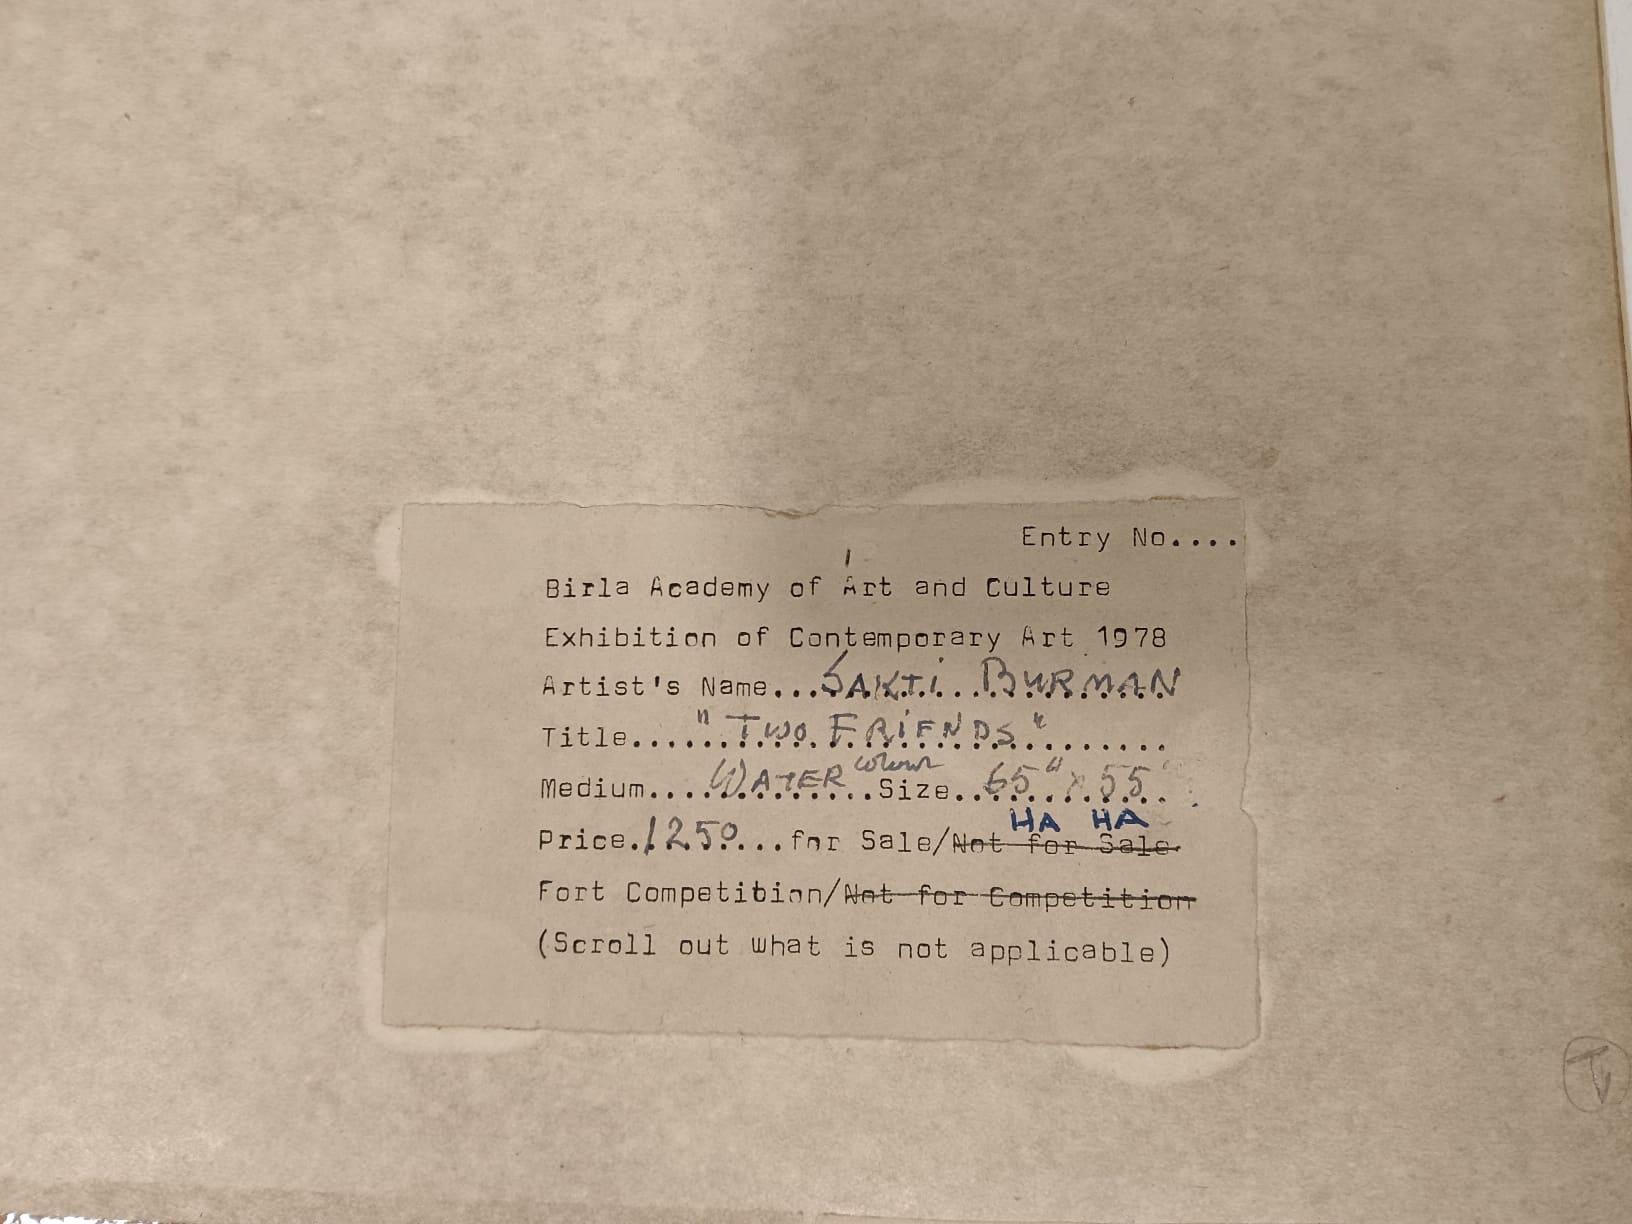 Entry No....
Birla Academy of Art and Culture
Exhibition of Contemporary Art 1978
Artist's Name...SAKTI BURMAN
Title....." TWO FRIENDS "..........
Medium....WATER colour...Size..65" x 55"
HA HA
Price.1250...for Sale/Not for Sale.
Fort Competition/Not for Competition
(Scroll out what is not applicable)